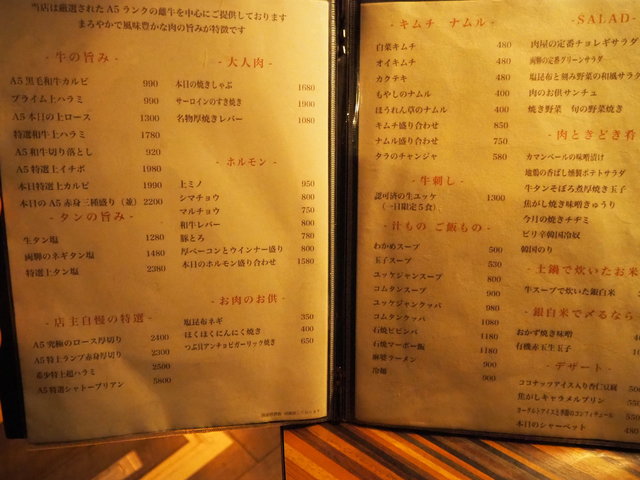 当店は厳選された A5 ランクの雌牛を中心にご提供しております
まろやかで風味豊かな肉の旨みが特徴です
- 牛の旨み -
A5 黒毛和牛カルビ 990
プライム上ハラミ 990
A5 本日の上ロース 1300
特選和牛上ハラミ 1780
A5 和牛切り落とし 920
A5 特選上イチボ 1980
本日特選上カルビ 1990
本日の A5 赤身三種盛り（並） 2200
- タンの旨み -
生タン塩 1280
両獅のネギタン塩 1480
特選上タン塩 2380
- 店主自慢の特選 -
A5 究極のロース厚切り 2400
A5 特上ランプ赤身厚切り 2300
希少特上超ハラミ 2500
A5 特選シャトーブリアン 5800
- 大人肉 -
本日の焼きしゃぶ 1680
サーロインのすき焼き 1900
名物厚焼きレバー 1080
- ホルモン -
上ミノ 950
シマチョウ 800
マルチョウ 750
和牛レバー 800
豚とろ 780
厚ベーコンとウインナー盛り 800
本日のホルモン盛り合わせ 1580
- お肉のお供 -
塩昆布ネギ 350
ほくほくにんにく焼き 400
つぶ貝アンチョビガーリック焼き 650
- キムチ ナムル -
白菜キムチ 480
オイキムチ 480
カクテキ 480
もやしのナムル 400
ほうれん草のナムル 400
キムチ盛り合わせ 850
ナムル盛り合わせ 750
タラのチャンジャ 580
- 牛刺し -
認可済の生ユッケ 1300
（一日限定5食）
- 汁もの ご飯もの -
わかめスープ 500
玉子スープ 530
ユッケジャンスープ 800
コムタンスープ 900
ユッケジャンクッパ 980
コムタンクッパ 1080
石焼ビビンバ 1180
石焼マーボー飯 1180
麻婆ラーメン 900
冷麺 900
- SALAD-
肉屋の定番チョレギサラダ
両獅の定番グリーンサラダ
塩昆布と刻み野菜の和風サラダ
肉のお供サンチュ
焼き野菜 旬の野菜焼き
- 肉ときどき肴
カマンベールの味噌漬け
地鶏の香ばし燻製ポテトサラダ
牛タンそぼろ煮厚焼き玉子
焦がし焼き味噌きゅうり
今月の焼きチヂミ
ピリ辛韓国冷奴
韓国のり
- 土鍋で炊いたお米
牛スープで炊いた銀白米
- 銀白米で〆るなら
おかず焼き味噌
有機赤玉生玉子
- デザート -
ココナッツアイス入り杏仁豆腐
焦がしキャラメルプリン 550
ヨーグルトアイスと季節のコンフィチュール
本日のシャーベット 480